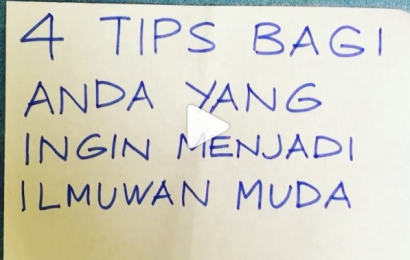 4 TIPS BAGI
ANDA YANG
INGIN MENJADI
ILMUWAN MUDA